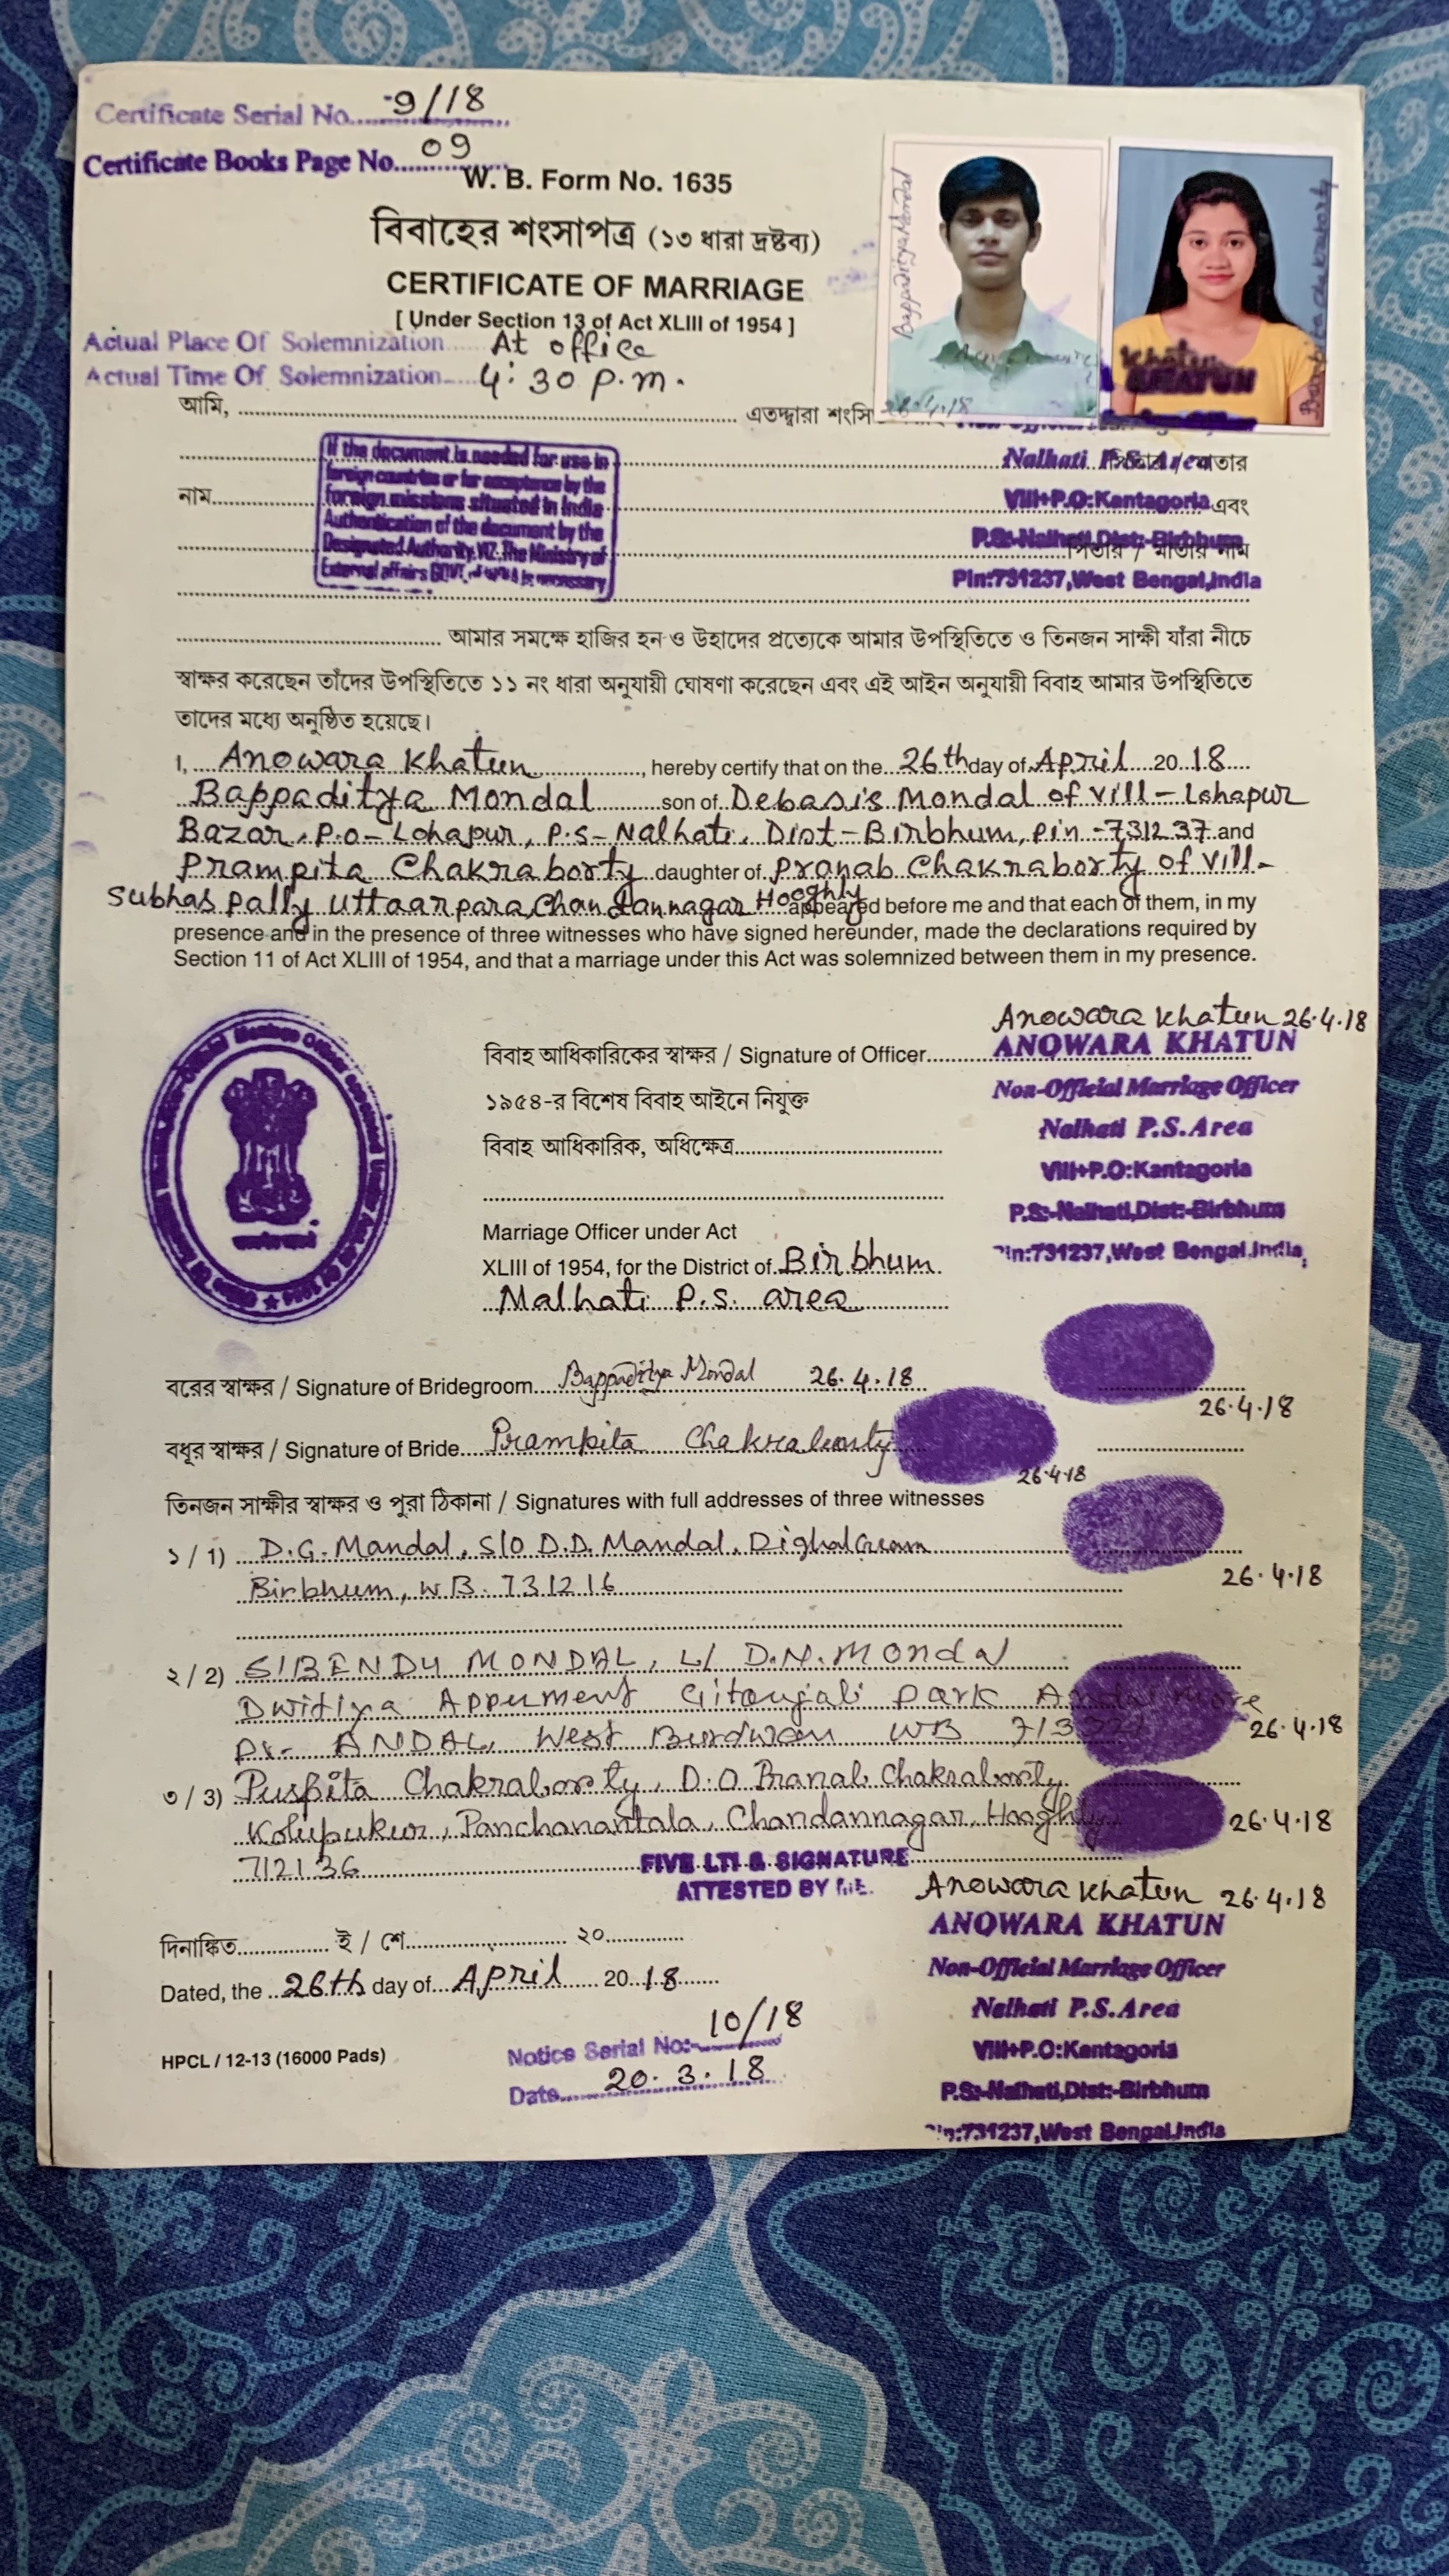 Certificate Serial No. 9/18
Certificate Books Page No. 09
W. B. Form No. 1635
বিবাহের শংসাপত্র (১৩ ধারা দ্রষ্টব্য)
CERTIFICATE OF MARRIAGE
[ Under Section 13 of Act XLIII of 1954 ]
Actual Place Of Solemnization At office
Actual Time Of Solemnization 4:30 p.m.
Bappaditya Mondal
Prampita Chakraborty
Khatun
KHATUN
26.4.18
আমি, এতদ্দ্বারা
Nalhati P.S. Area
নাম
Vill+P.O:Kantagoria এবং
P.S:-Nalhati,Dist:-Birbhum
পিতার / মাতার নাম
Pin:731237,West Bengal,India
If the document is needed for use in
foreign countries or for acceptance by the
foreign missions situated in India
Authentication of the document by the
Designated Authority VIZ. The Ministry of
External affairs GOVT. of necessary
আমার সমক্ষে হাজির হন ও উহাদের প্রত্যেকে আমার উপস্থিতিতে ও তিনজন সাক্ষী যাঁরা নীচে
স্বাক্ষর করেছেন তাঁদের উপস্থিতিতে ১১ নং ধারা অনুযায়ী ঘোষণা করেছেন এবং এই আইন অনুযায়ী বিবাহ আমার উপস্থিতিতে
তাদের মধ্যে অনুষ্ঠিত হয়েছে।
I, Anowara Khatun, hereby certify that on the 26th day of April 20 18
Bappaditya Mondal son of Debasis Mondal of vill - Lohapur
Bazar, P.O - Lohapur, P.S - Nalhati, Dist - Birbhum, Pin - 731237 and
Prampita Chakraborty daughter of Pranab Chakraborty of vill -
Subhas Pally Uttaarpara, Chandannagar Hooghly appeared before me and that each of them, in my
presence and in the presence of three witnesses who have signed hereunder, made the declarations required by
Section 11 of Act XLIII of 1954, and that a marriage under this Act was solemnized between them in my presence.
Anowara Khatun 26.4.18
বিবাহ আধিকারিকের স্বাক্ষর / Signature of Officer ANOWARA KHATUN
Non-Official Marriage Officer
১৯৫৪-র বিশেষ বিবাহ আইনে নিযুক্ত
Nalhati P.S.Area
বিবাহ আধিকারিক, অধিক্ষেত্র
Vill+P.O:Kantagoria
P.S:-Nalhati,Dist:-Birbhum
Marriage Officer under Act
Pin:731237,West Bengal,India
XLIII of 1954, for the District of Birbhum
Nalhati P.S. area
বরের স্বাক্ষর / Signature of Bridegroom Bappaditya Mondal 26.4.18
26.4.18
বধূর স্বাক্ষর / Signature of Bride Prampita Chakraborty
26.4.18
তিনজন সাক্ষীর স্বাক্ষর ও পুরা ঠিকানা / Signatures with full addresses of three witnesses
১ / 1) D.G. Mandal, S/O D.D. Mandal, Dighalgram
Birbhum, WB. 731216
26.4.18
২ / 2) SIBENDU MONDAL, D.N. Mondal
Dwitiya Gitanjali Park
ANDAL, West Burdwan WB
26.4.18
৩ / 3) Puspita Chakraborty, D.O Pranab Chakraborty
Kolupukur, Panchanantala, Chandannagar, Hooghly
26.4.18
712136
FIVE LTI & SIGNATURE
ATTESTED BY ME.
Anowara Khatun 26.4.18
ANOWARA KHATUN
Non-Official Marriage Officer
Nalhati P.S.Area
Vill+P.O:Kantagoria
P.S:-Nalhati,Dist:-Birbhum
Pin:731237,West Bengal,India
দিনাঙ্কিত ই / শে ২০
Dated, the 26th day of April 20 18
HPCL / 12-13 (16000 Pads)
Notice Serial No:- 10/18
Date 20.3.18